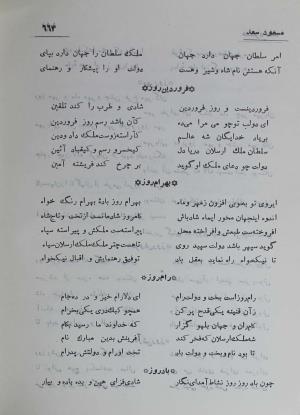 مسعود سعد
۶۶۴
امر سلطان جهان دارد جهان    ملک سلطان را جهان دارد بپای
آنکه هستش نام شاه وشیر وهست    دولت او را پیشکار و رهنمای
*فروردین روز*
فروردینست و روز فروردین    شادی و طرب را کند تلقین
ای دولت توچو می مرا ده    کان باشد رسم روز فروردین
بر یاد خدایگان شه عالم    کاراسته زوست ملک داد ودین
سلطان ملک ارسلان دریا دل    کیخسرو رسم و کیقباد آئین
دولت چو دعای ملک او گوید    بر چرخ کند فریشته آمین
*بهرام روز*
ایروی تو بخوبی افزون زمهر وماه    بهرام روز باده بهرام رنگ خواه
اندوه اینجهان مخور ایماه شادباش    شاهست تخت وتاج
افروخته محل    پیراسته سپاه
گوید سپهر باشد دولت سپید روی    ملک ارسلان
تا نیکخواه راه نماید بعقل باید    توفیق رهنمایش و اقبال نیکخواه
*رام روز*
رام روز است بخت و دولت رام    ای دلارام خیز و در ده جام
زآن قنینه یکی قدح پر کن    همچو کبک دری یکی بخرام
کامران و جهان بلهو گذار    که خداوند ما رسید بکام
شه ملک ارسلان که فخر کند    آفرینش بدین مبارک نام
تا بود نام وبخت و دولت باد    تخت او رام و دولتش پدرام
*باد روز*
چون باد روز روز نشاط آمد ای نگار    شادی فزای هین و بده باده و بیار